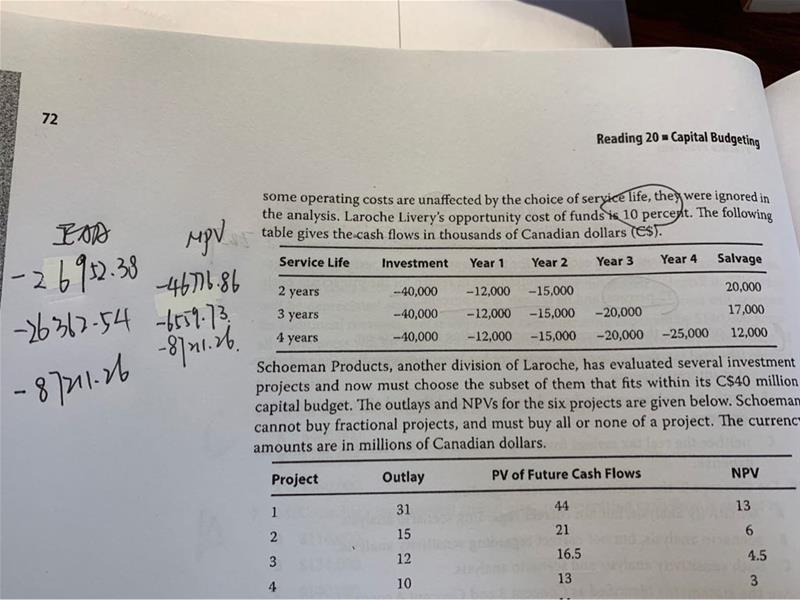 72
Reading 20 ▪ Capital Budgeting
some operating costs are unaffected by the choice of service life, they were ignored in
the analysis. Laroche Livery's opportunity cost of funds is 10 percent. The following
table gives the cash flows in thousands of Canadian dollars (C$).
Service Life Investment Year 1 Year 2 Year 3 Year 4 Salvage
2 years −40,000 −12,000 −15,000 20,000
3 years −40,000 −12,000 −15,000 −20,000 17,000
4 years −40,000 −12,000 −15,000 −20,000 −25,000 12,000
NPV
-26952.38
-46776.86
-26362.54
-6559.73
-87211.26
-87211.26
Schoeman Products, another division of Laroche, has evaluated several investment
projects and now must choose the subset of them that fits within its C$40 million
capital budget. The outlays and NPVs for the six projects are given below. Schoeman
cannot buy fractional projects, and must buy all or none of a project. The currenc
amounts are in millions of Canadian dollars.
Project Outlay PV of Future Cash Flows NPV
1 31 44 13
2 15 21 6
3 12 16.5 4.5
4 10 13 3